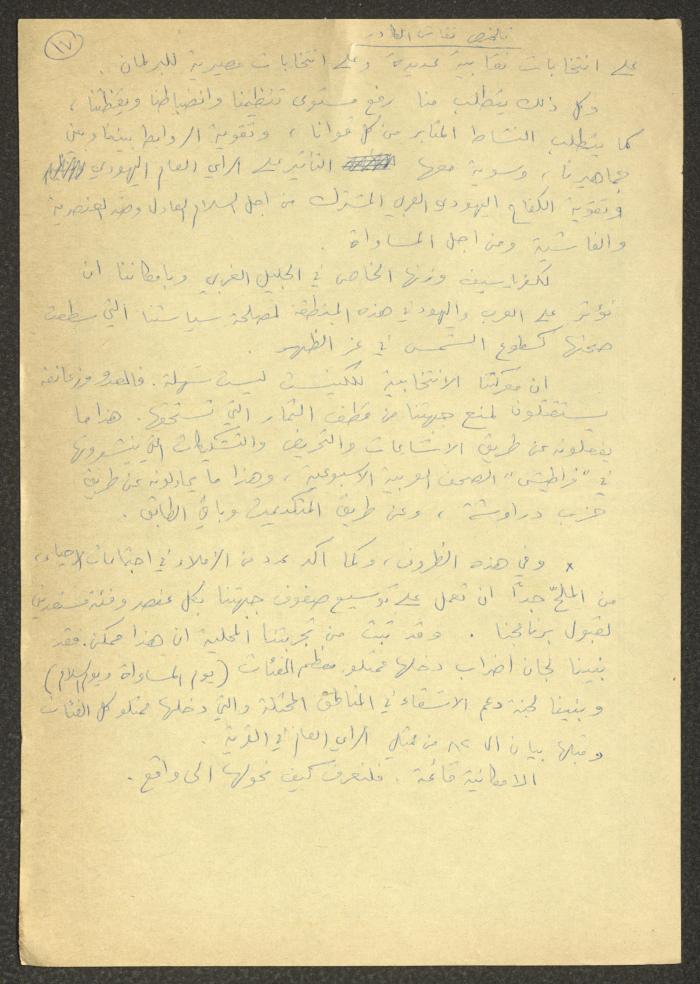 ١٧
تلخيص نقاش الكادر
على انتخابات نقابية عديدة وعلى انتخابات مصيرية للبرلمان.
وكل ذلك يتطلب منا رفع مستوى تنظيمنا وانضباطنا ويقظتنا،
كما يتطلب النشاط المثابر من كل قوانا، وتقوية الروابط بيننا وبين
جماهيرنا، وسوية معها التأثير على الرأي العام اليهودي
وتقوية الكفاح اليهودي العربي المشترك من اجل السلام العادل وضد العنصرية
والفاشية ومن اجل المساواة.
لكفرياسيف وزنها الخاص في الجليل الغربي وبامكاننا ان
نؤثر على العرب واليهود في هذه المنطقة لمصلحة سياستنا التي سطعت
صحتها كسطوع الشمس في عز الظهر.
ان معركتنا الانتخابية للكنيست ليست سهلة. فالعدو وزعانفه
يستقتلون لمنع جبهتنا من قطف الثمار التي تستحقها. هذا ما
يفعلونه عن طريق الاشاعات والتحريض والتشكيكات التي ينشرونها
في "قراطيس" الصحف العربية الاسبوعية، وهذا ما يحاولونه عن طريق
حزب دراوشة، وعن طريق المتقدمية وباقي الطابق.
x وفي هذه الظروف، وكما اكد عدد من الزملاء في اجتماعات الاحياء،
من الملحّ جدًا ان نعمل على توسيع صفوف جبهتنا بكل عنصر وفئة مستعدين
لقبول برنامجنا. وقد ثبت من تجربتنا المحلية ان هذا ممكن. فقد
بنينا لجان اضراب دخلها ممثلو معظم الفئات (يوم المساواة ويوم السلام)
وبنينا لجنة دعم الاشقاء في المناطق المحتلة والتي دخلها ممثلو كل الفئات
وقبلها بيان الـ ٨٢ من ممثلي الرأي العام في القرية.
الامكانية قائمة. فلنعرف كيف نحولها الى واقع.